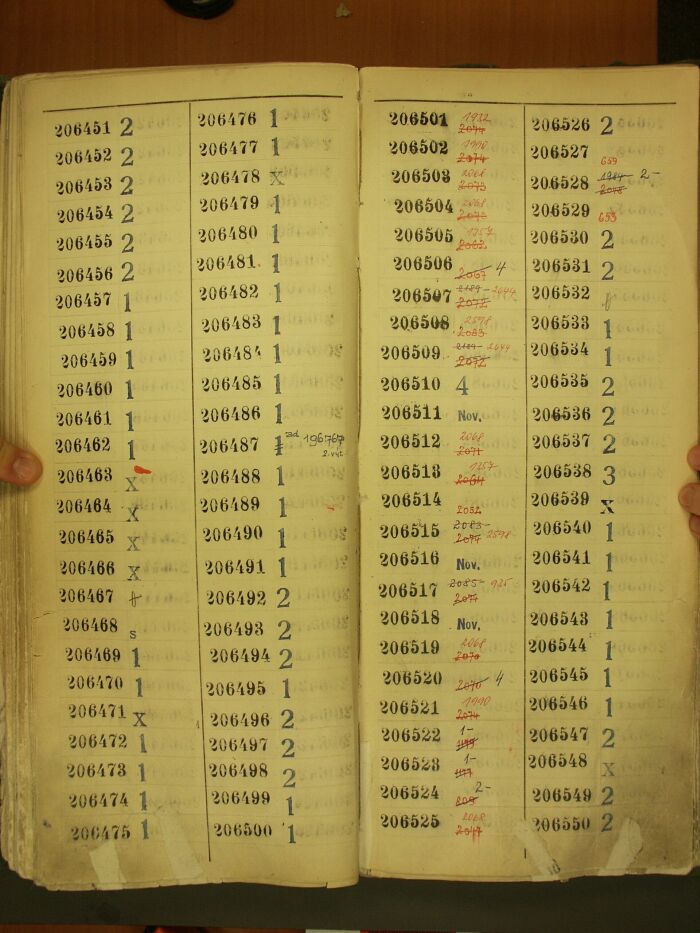 206451 2
206452 2
206453 2
206454 2
206455 2
206456 2
206457 1
206458 1
206459 1
206460 1
206461 1
206462 1
206463 X
206464 X
206465 X
206466 X
206467
206468 s
206469 1
206470 1
206471 X
206472 1
206473 1
206474 1
206475 1
206476 1
206477 1
206478 X
206479 1
206480 1
206481 1
206482 1
206483 1
206484 1
206485 1
206486 1
206487 1 ad 196767
2. výt
206488 1
206489 1
206490 1
206491 1
206492 2
206493 2
206494 2
206495 1
206496 2
206497 2
206498 2
206499 1
206500 1
206501 1932
2074
206502 1990
2074
206503 2068
2073
206504 2068
206505 1257
206506 2067 4
206507
2072
206508 2598
2083
206509
2072
206510 4
206511 Nov.
206512 2068
2071
206513 1257
2064
206514 2052
206515 2083-
2074 2598
206516 Nov.
206517 2085- 925
2071
206518 Nov.
206519 2068
2070
206520 2070 4
206521 1990
2074
206522 1-
206523 1-
206524 2-
209
206525 2068
206526 2
206527 659
206528 1984 2-
2078
206529 653
206530 2
206531 2
206532
206533 1
206534 1
206535 2
206536 2
206537 2
206538 3
206539 X
206540 1
206541 1
206542 1
206543 1
206544 1
206545 1
206546 1
206547 2
206548 X
206549 2
206550 2